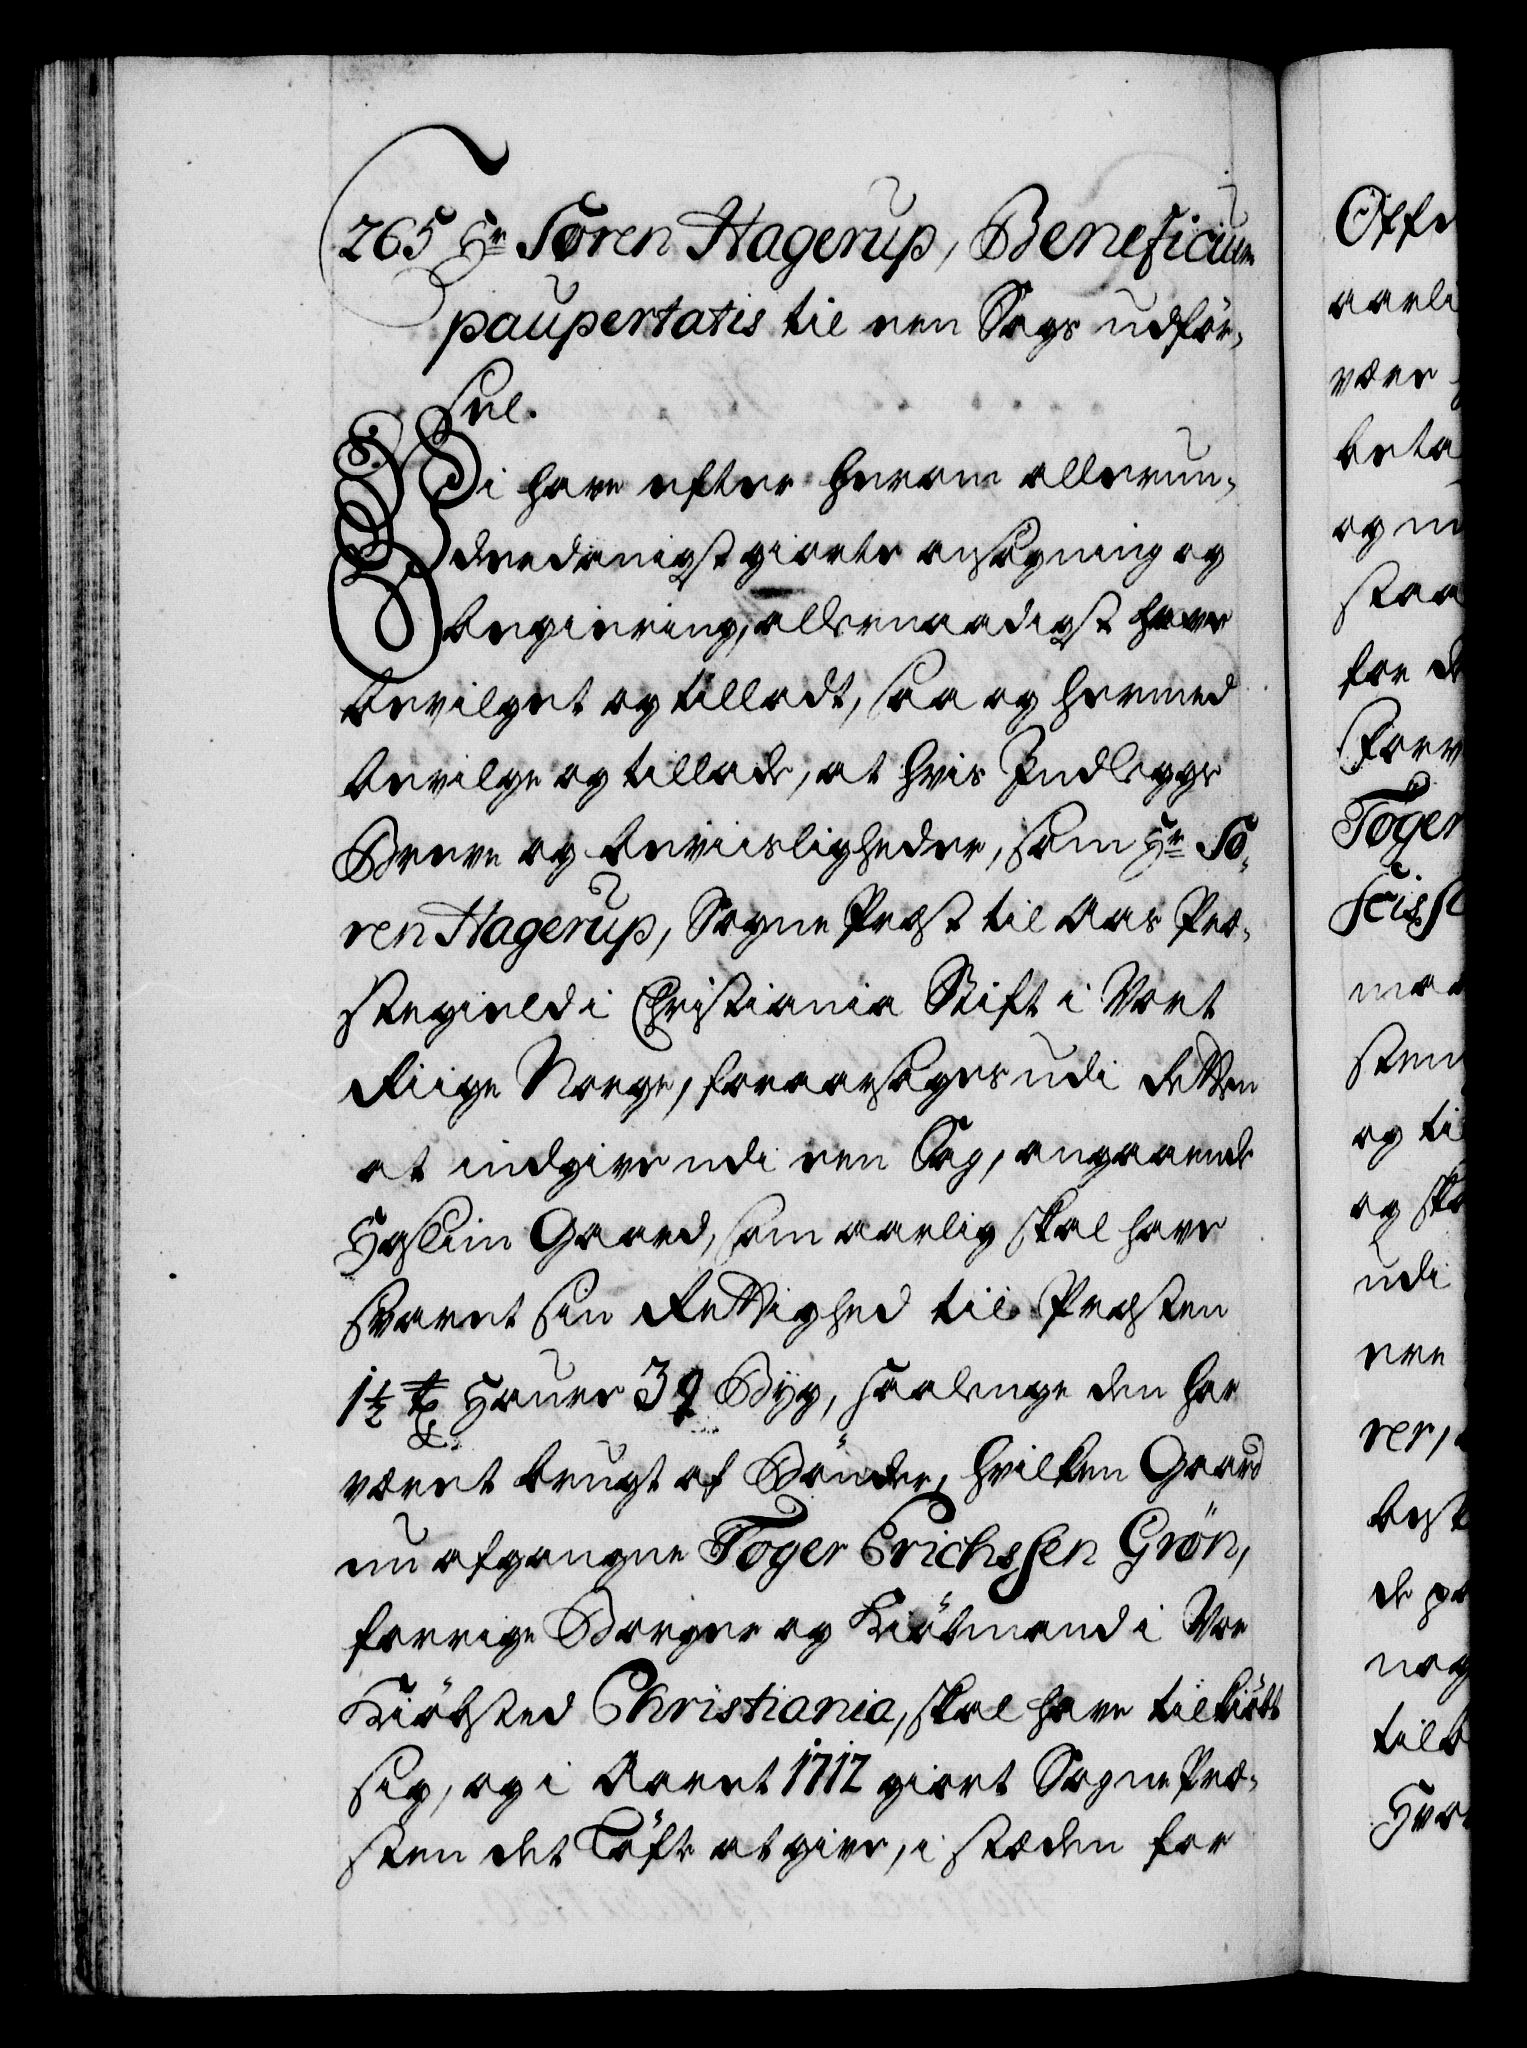 265 Hr Søren Hagerup, Beneficium
paupertatis til een Sags udför-
sel.
Vi have efter herom allerun-
derdanigst giorte ansøgning og
begiering, allernaadigst have
bevilget og tilladt, saa og hermed
bevilge og tillade, at hvis Indlegge
Breve og beviisligheder, som Hr Sø-
ren Hagerup, Sogne Præst til Aas Præ-
stegield i Christiania Stift i Vort
Riige Norge, foraarsages udi Retten
at indgive udi een Sag, angaaende
Haslim Gaard, som aarlig skal have
svaret sin Rettighed til Præsten
1½ Haver 3 Byg, saalenge den har
været brugt af Bönder, hvilken Gaard
nu afgangne Töger Erichssen Grön,
forrige Borger og Kiöbmand i Vor
Kiöbsted Christiania, skal have tilkiöbt
sig, og i Aaret 1712 giort Sogne Præ-
sten det Löfte at give, i stæden for